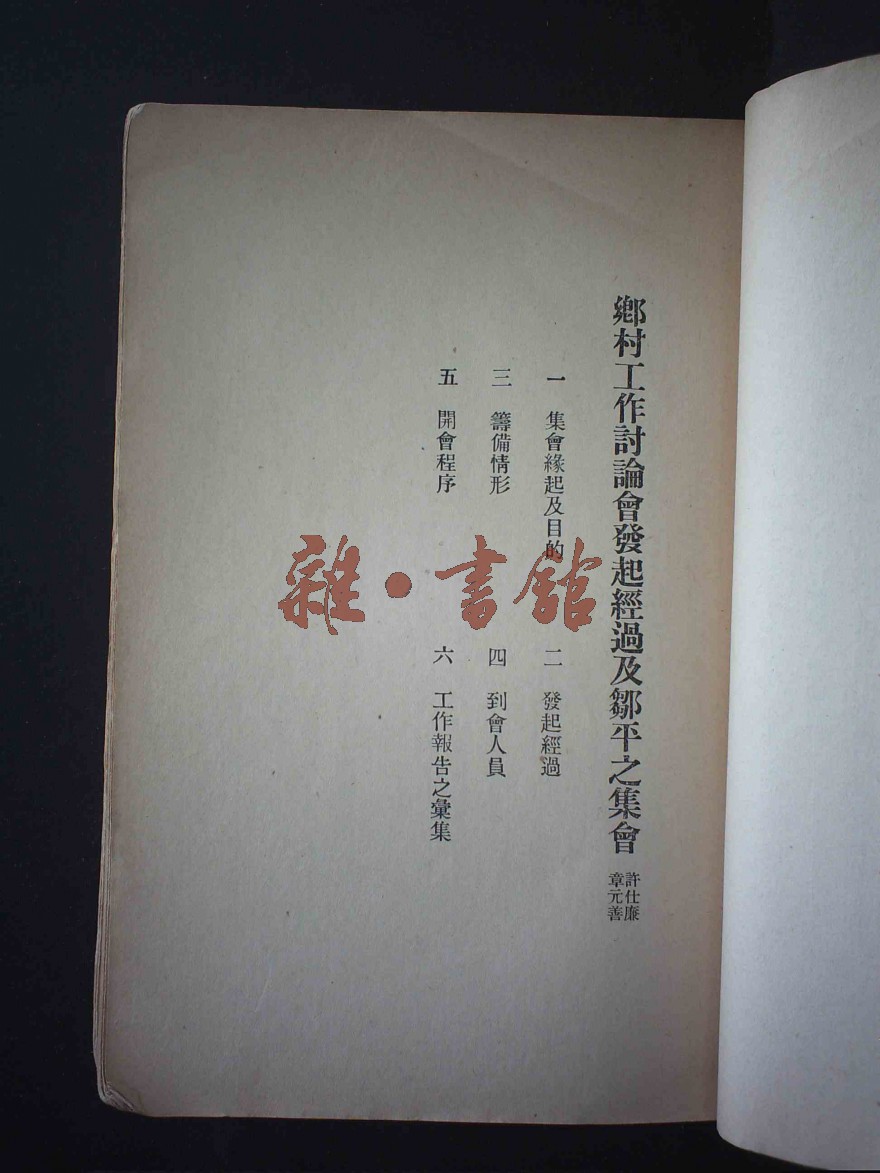 鄉村工作討論會發起經過及鄒平之集會
許仕廉
章元善
一 集會緣起及目的
二 發起經過
三 籌備情形
四 到會人員
五 開會程序
六 工作報告之彙集
雜·書館